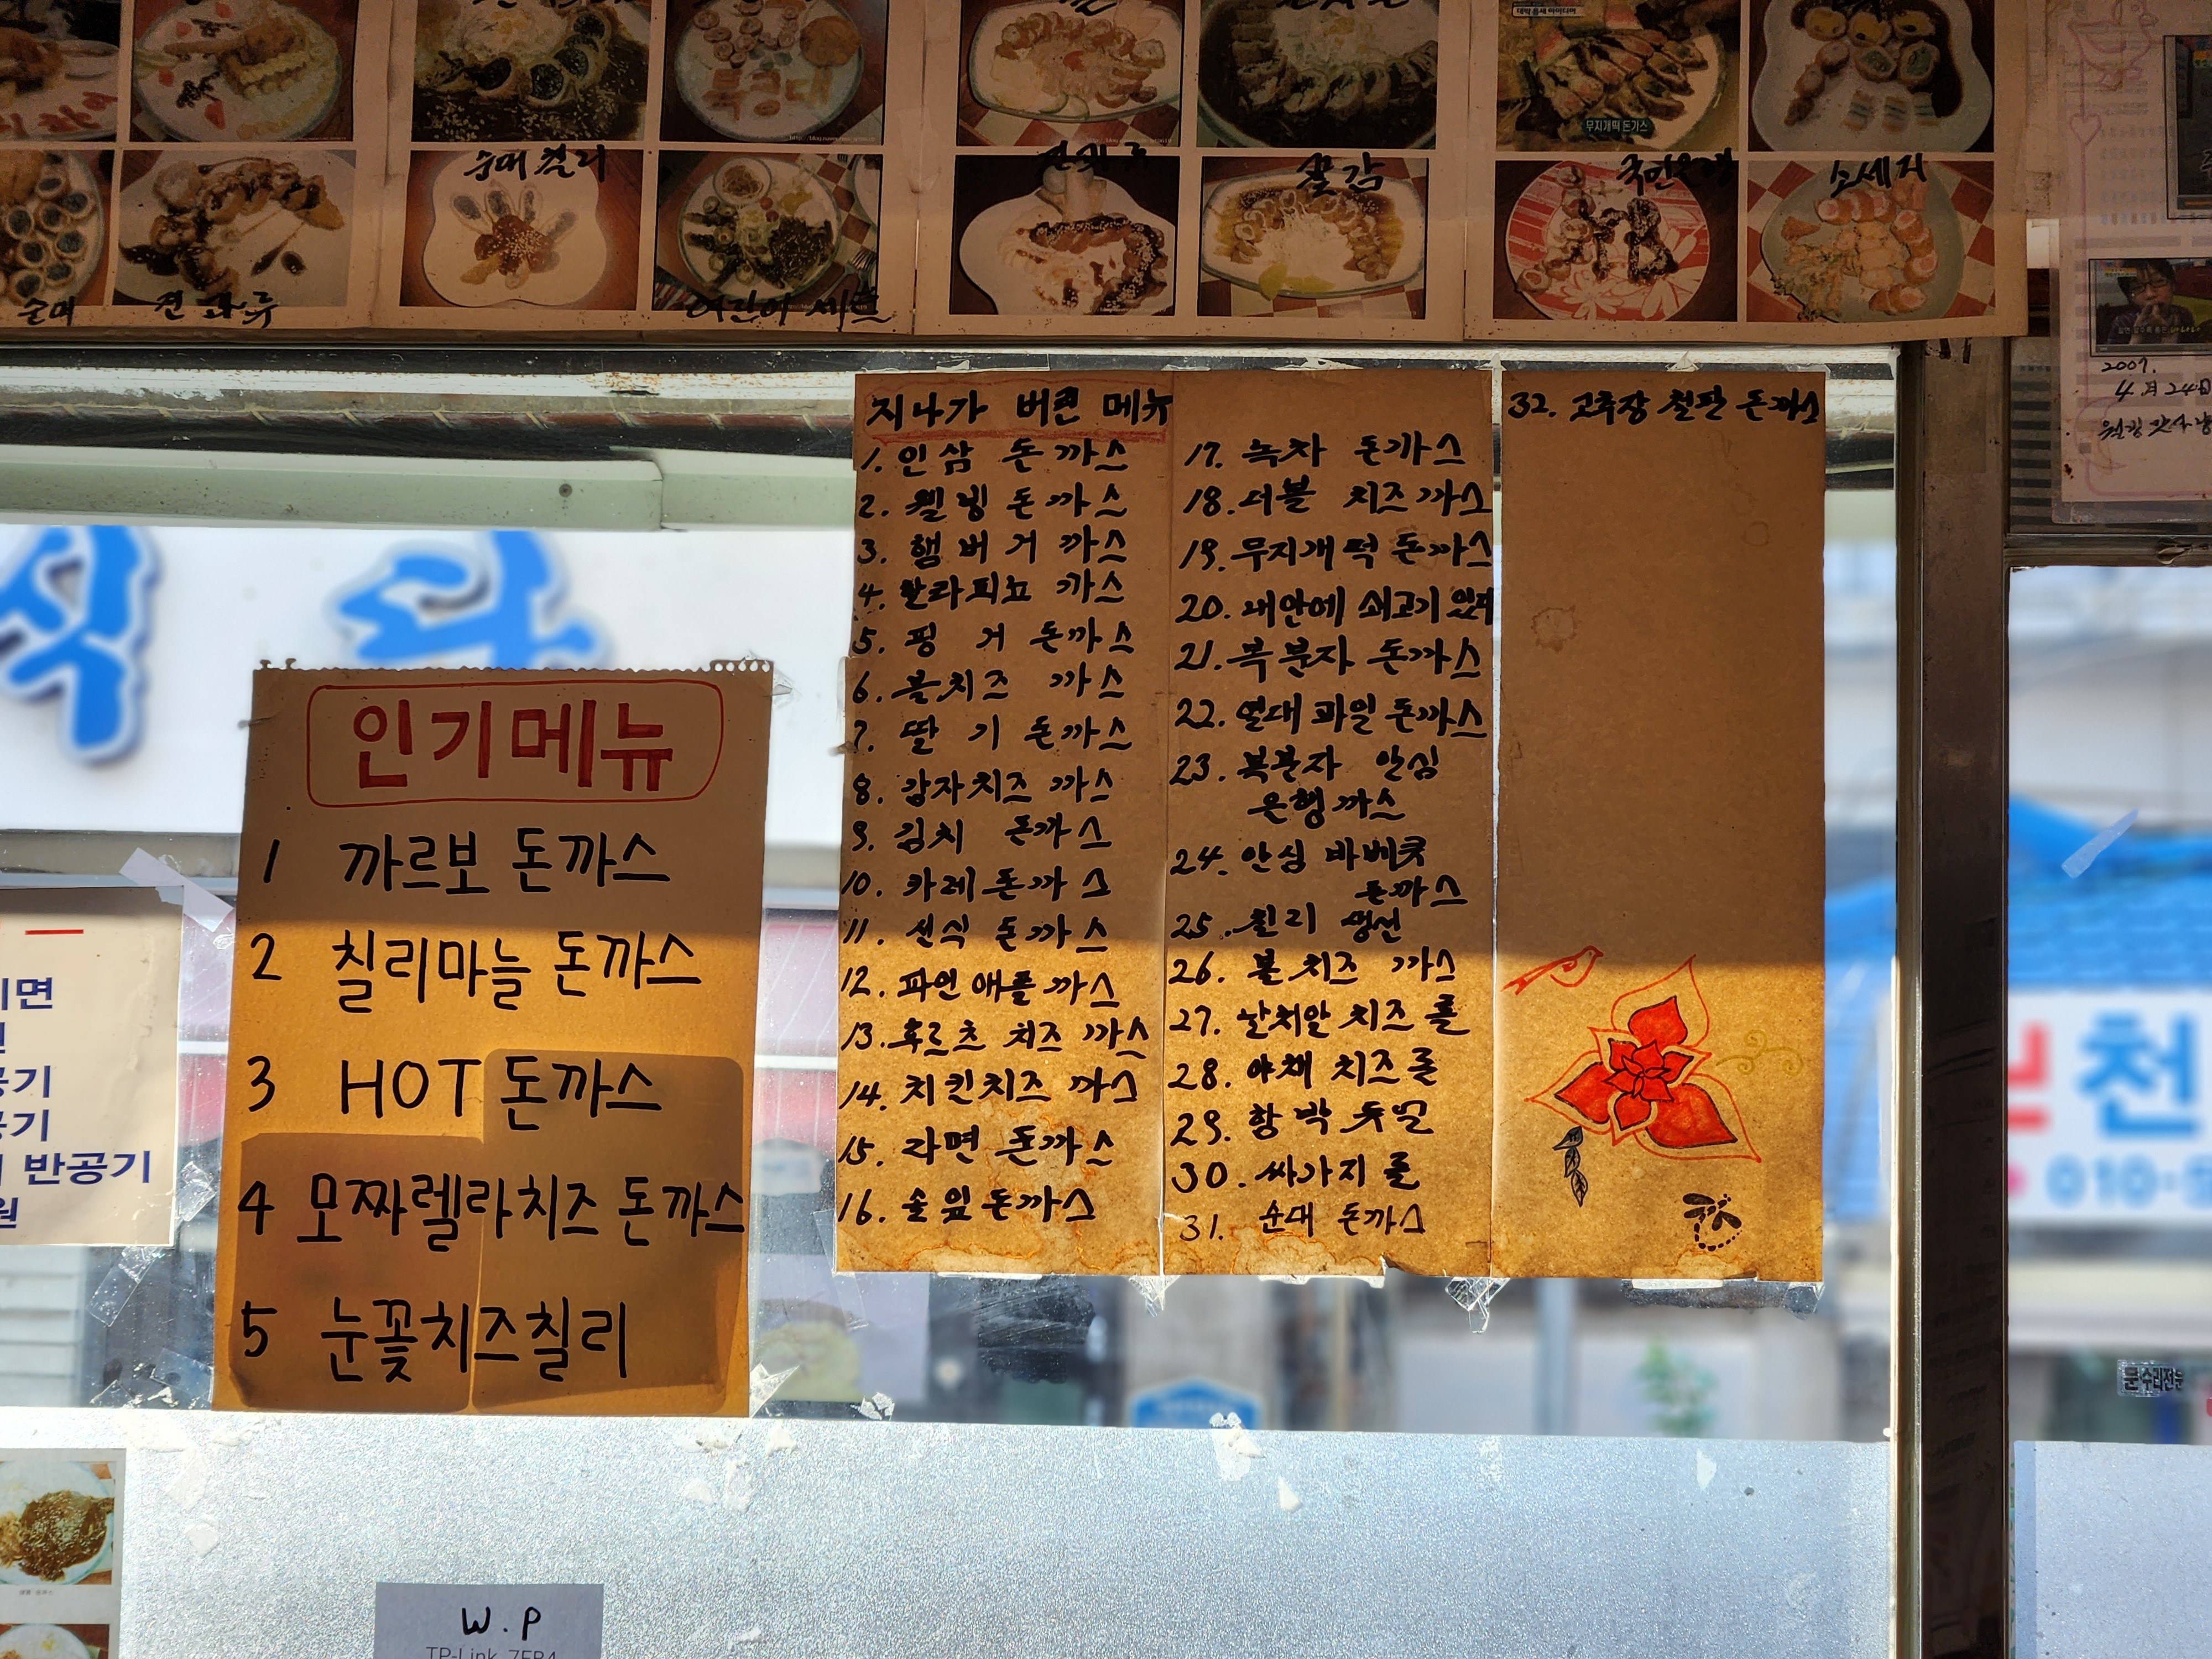 순대칠리
곶감
소세지
순대
견과류
어린이 세트
무지개떡 돈가스
2007.
4月 24日
식
인기메뉴
1 까르보 돈까스
2 칠리마늘 돈까스
3 HOT 돈까스
4 모짜렐라치즈 돈까스
5 눈꽃치즈칠리
지나가 버린 메뉴
1. 인삼 돈까스
2. 웰빙 돈까스
3. 햄버거 까스
4. 할라피뇨 까스
5. 핑거 돈까스
6. 볼치즈 까스
7. 딸기 돈까스
8. 감자치즈 까스
9. 김치 돈까스
10. 카레돈까스
11. 선식 돈까스
12. 파인애플 까스
13. 후르츠 치즈 까스
14. 치킨치즈 까스
15. 라면 돈까스
16. 솔잎돈까스
17. 녹차 돈까스
18. 더블 치즈까스
19. 무지개떡 돈까스
20. 내안에 쇠고기 있다
21. 복분자 돈까스
22. 열대과일 돈까스
23. 복분자 안심
은행까스
24. 안심 바베큐
돈까스
25. 칠리 생선
26. 볼치즈 까스
27. 날치알 치즈롤
28. 야채 치즈롤
29. 함박
30. 싸가지 롤
31. 순대 돈까스
32. 고추장 철판 돈까스
반공기
천
W.P
TP-Link